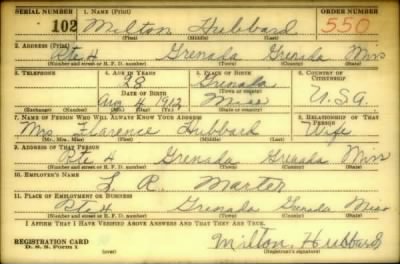 SERIAL NUMBER 1. NAME (Print) ORDER NUMBER
102 Milton Hubbard 550
(First) (Middle) (Last)
2. ADDRESS (Print)
Rte 4 Grenada Grenada Miss
(Number and street or R. F. D. number) (Town) (County) (State)
3. TELEPHONE 4. AGE IN YEARS 5. PLACE OF BIRTH 6. COUNTRY OF CITIZENSHIP
28 Grenada
DATE OF BIRTH (Town or county)
Aug 4 1912 Miss U.S.A.
(Exchange) (Number) (Mo.) (Day) (Yr.) (State or country)
7. NAME OF PERSON WHO WILL ALWAYS KNOW YOUR ADDRESS 8. RELATIONSHIP OF THAT PERSON
Mrs Florence Hubbard Wife
(Mr., Mrs., Miss) (First) (Middle) (Last)
9. ADDRESS OF THAT PERSON
Rte 4 Grenada Grenada Miss
(Number and street or R. F. D. number) (Town) (County) (State)
10. EMPLOYER'S NAME
L. R. Marter
11. PLACE OF EMPLOYMENT OR BUSINESS
Rte 4 Grenada Grenada Miss
(Number and street or R. F. D. number) (Town) (County) (State)
I AFFIRM THAT I HAVE VERIFIED ABOVE ANSWERS AND THAT THEY ARE TRUE.
REGISTRATION CARD Milton Hubbard
D. S. S. Form 1 (over) (Registrant's signature)